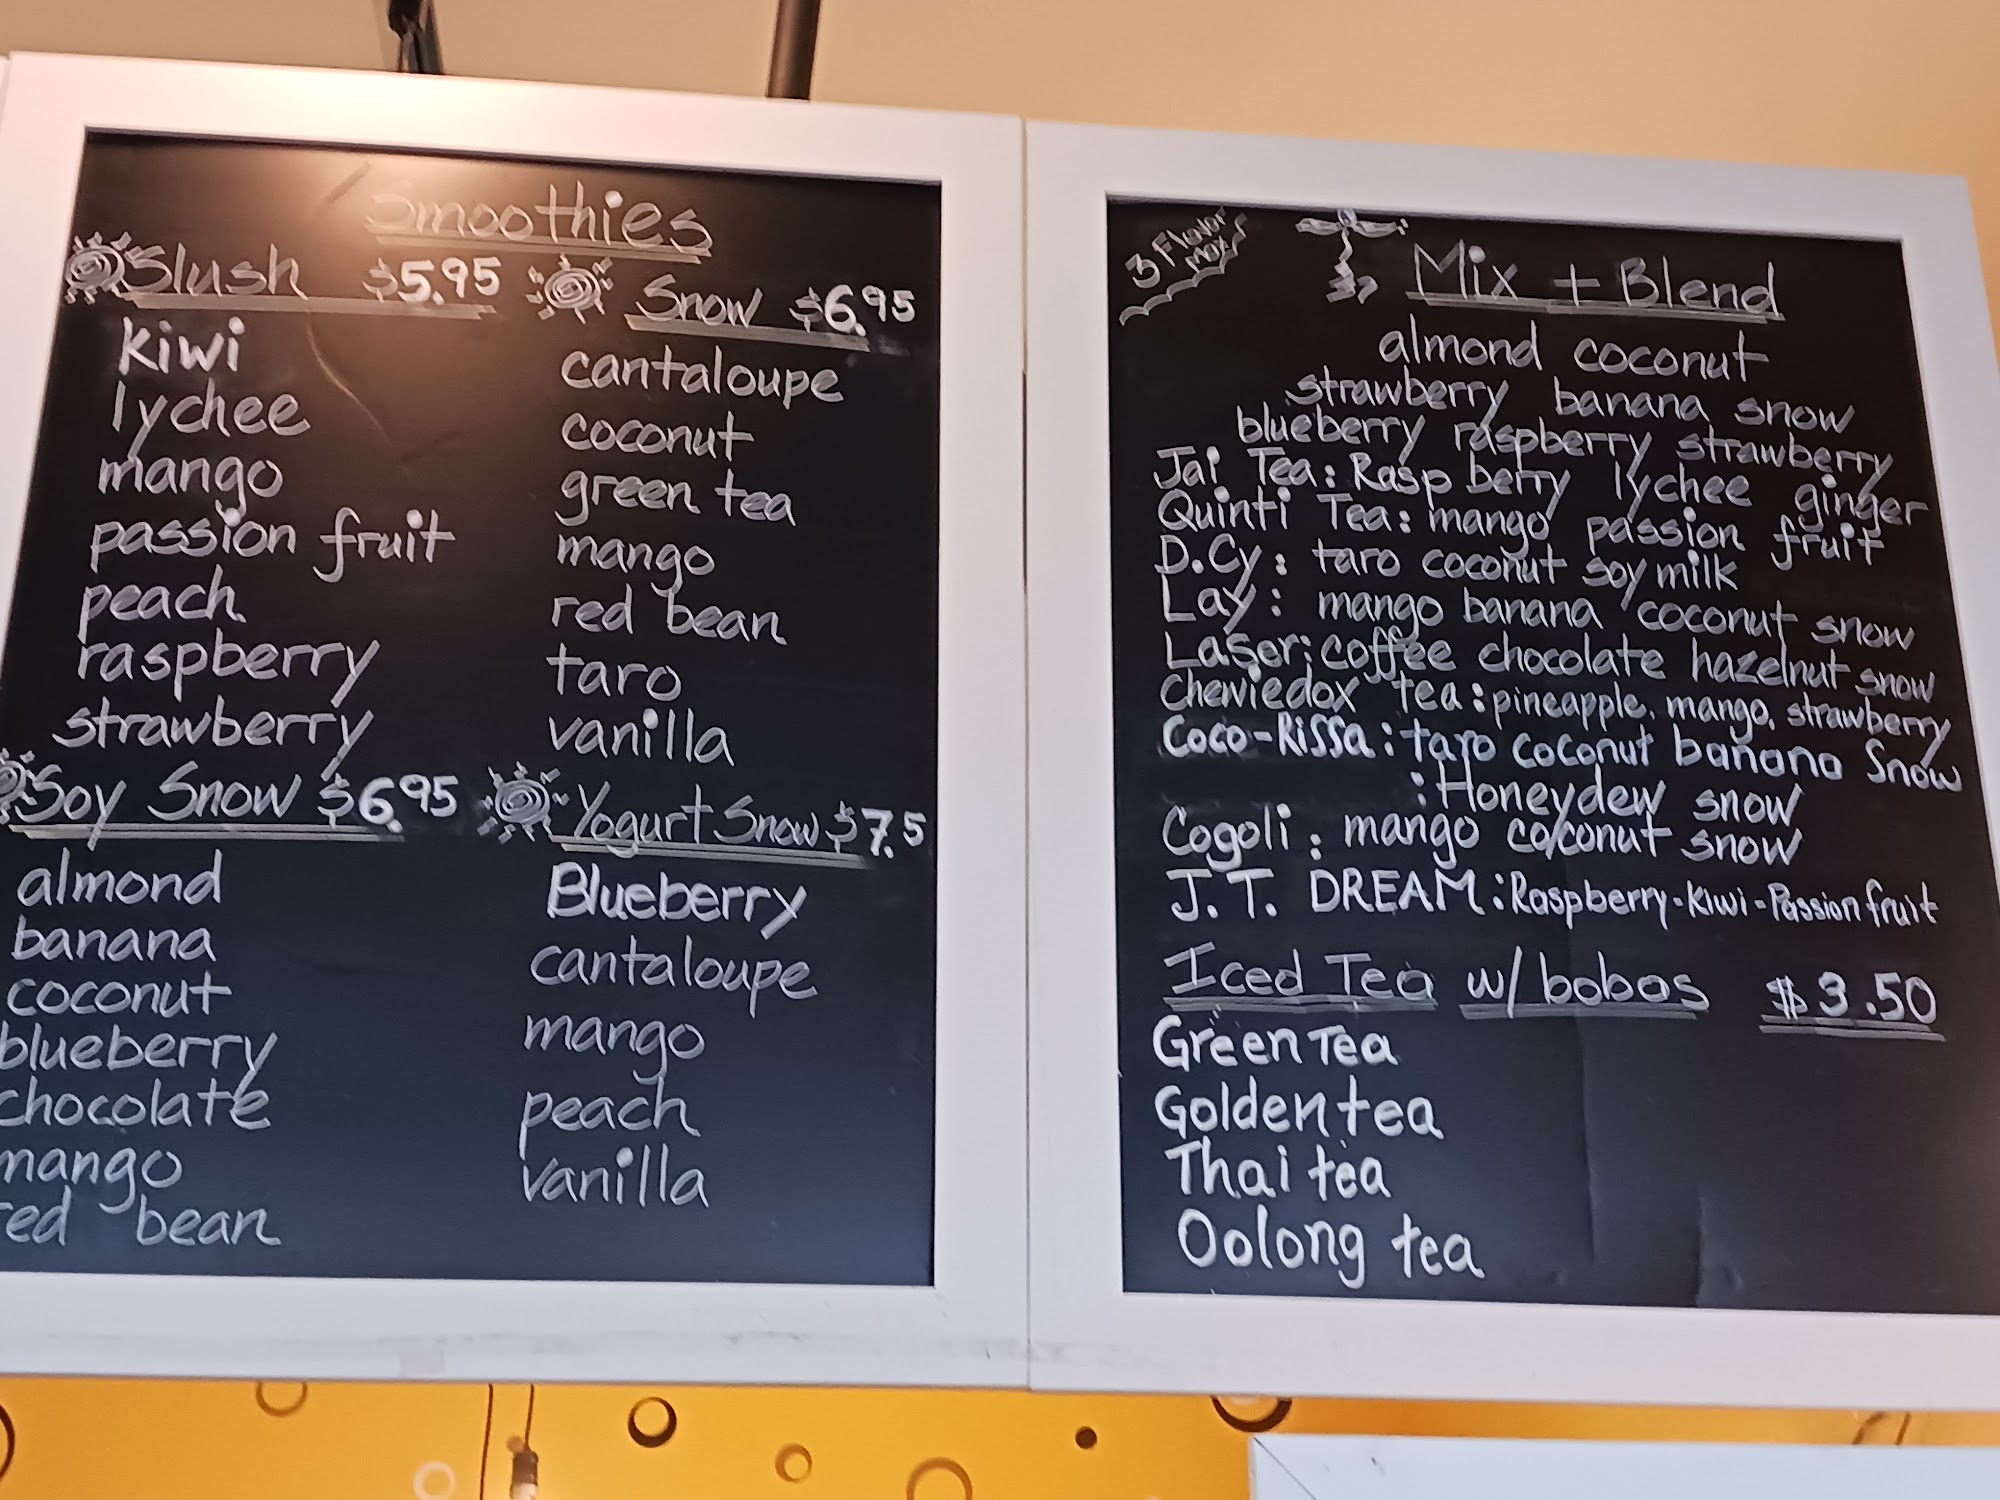 Smoothies
Slush $5.95
kiwi
lychee
mango
passion fruit
peach
raspberry
strawberry
Snow $6.95
cantaloupe
coconut
green tea
mango
red bean
taro
vanilla
Soy Snow $6.95
almond
banana
coconut
blueberry
chocolate
mango
red bean
Yogurt Snow $7.5
Blueberry
cantaloupe
mango
peach
vanilla
3 Flavor
max
Mix + Blend
almond coconut
strawberry banana snow
blueberry raspberry strawberry
Jai Tea: Raspberry lychee ginger
Quinti Tea: mango passion fruit
D.Cy: taro coconut soy milk
Lay: mango banana coconut snow
Laser: coffee chocolate hazelnut snow
Chewiedox tea: pineapple, mango, strawberry
Coco-Rissa: taro coconut banana Snow
: Honeydew snow
Cogoli: mango coconut snow
J.T. DREAM: Raspberry-Kiwi-Passion fruit
Iced Tea w/ bobas $3.50
Green Tea
Golden tea
Thai tea
Oolong tea